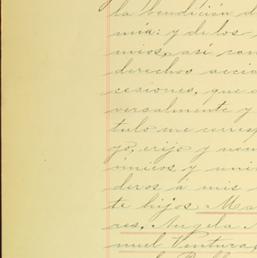 la bendición d
mía: y de los
mios, así com
derechos accio
cesiones, que
versalmente y
tulo me corresp
go, erijo y nom
únicos y uni
deros a mis
te hijos Ma
res, Angela M
nuel Ventura,